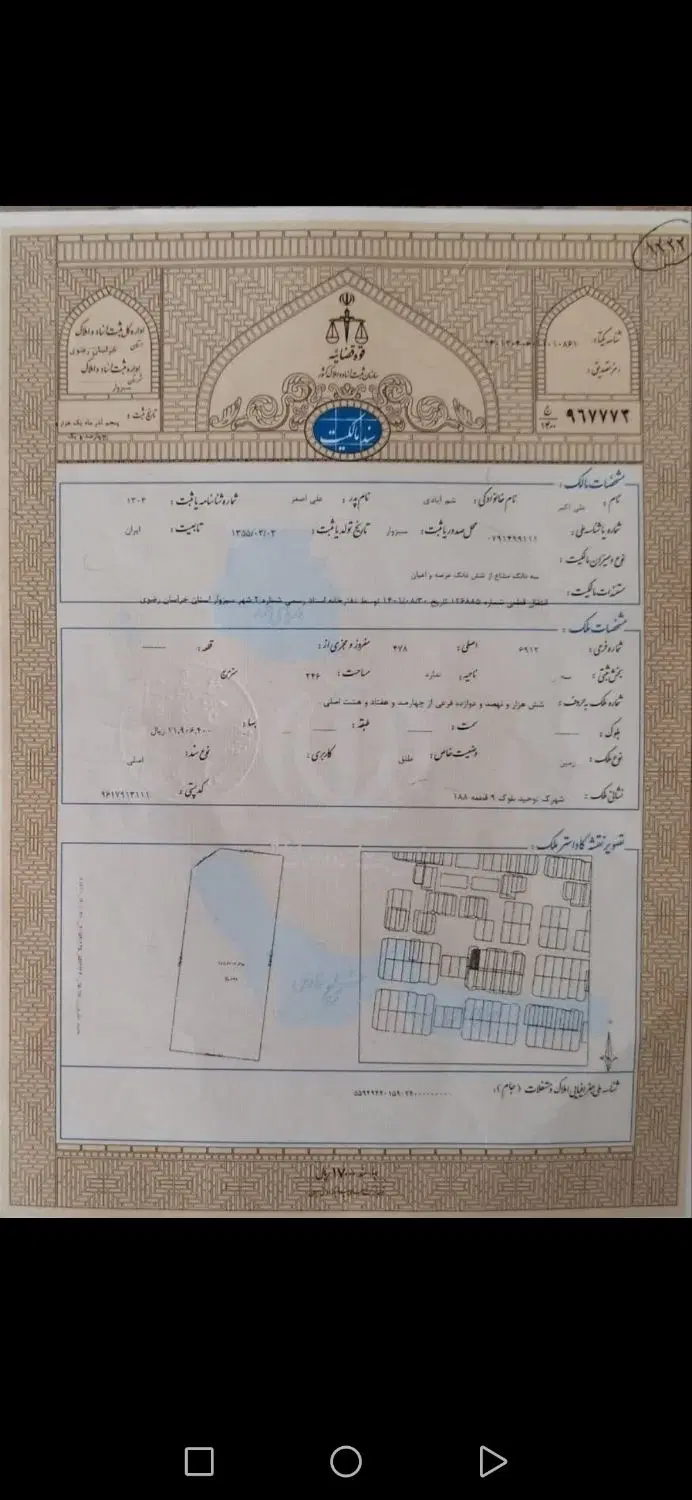 ۱۲۲۲
قوه قضائیه
سازمان ثبت اسناد و املاک کشور
سند مالکیت
شناسه یکتا:
رمز تصدیق:
۹۶۷۷۷۲
اداره کل ثبت اسناد و املاک
استان خراسان رضوی
اداره ثبت اسناد و املاک
شهرستان سبزوار
تاریخ ثبت: پنجم آذر ماه یک هزار
و چهارصد و یک
مشخصات مالک:
نام: علی اکبر نام خانوادگی: شم آبادی نام پدر: علی اصغر شماره شناسنامه یا ثبت: ۱۳۰۲
شماره یا شناسه ملی: محل صدور یا ثبت: سبزوار تاریخ تولد یا ثبت: ۱۳۵۵/۰۲/۰۲ تابعیت: ایران
نوع و میزان مالکیت: سه دانگ مشاع از شش دانگ عرصه و اعیان
مستندات مالکیت: انتقال قطعی شماره ۱۲۶۸۸۵ تاریخ ۱۴۰۱/۰۸/۳۰ توسط دفترخانه اسناد رسمی شماره ۲ شهر سبزوار استان خراسان رضوی
مشخصات ملک:
شماره فرعی: ۶۹۱۲ اصلی: ۴۷۸ مفروز و مجزی از: قطعه:
بخش ثبتی: ناحیه: ندارد مساحت: ۲۴۶ مترمربع
شماره ملک به حروف: شش هزار و نهصد و دوازده فرعی از چهارصد و هفتاد و هشت اصلی
بلوک: سمت: طبقه: بهاء: ۱۱,۹۰۶,۴۰۰ ریال
نوع ملک: زمین وضعیت خاص: طلق کاربری: نوع سند: اصلی
نشانی ملک: شهرک توحید بلوک ۹ قطعه ۱۸۸ کدپستی: ۹۶۱۷۹۱۳۱۱۱
تصویر نقشه کاداستر ملک:
شناسه ملی جغرافیایی املاک و مستغلات (جام):